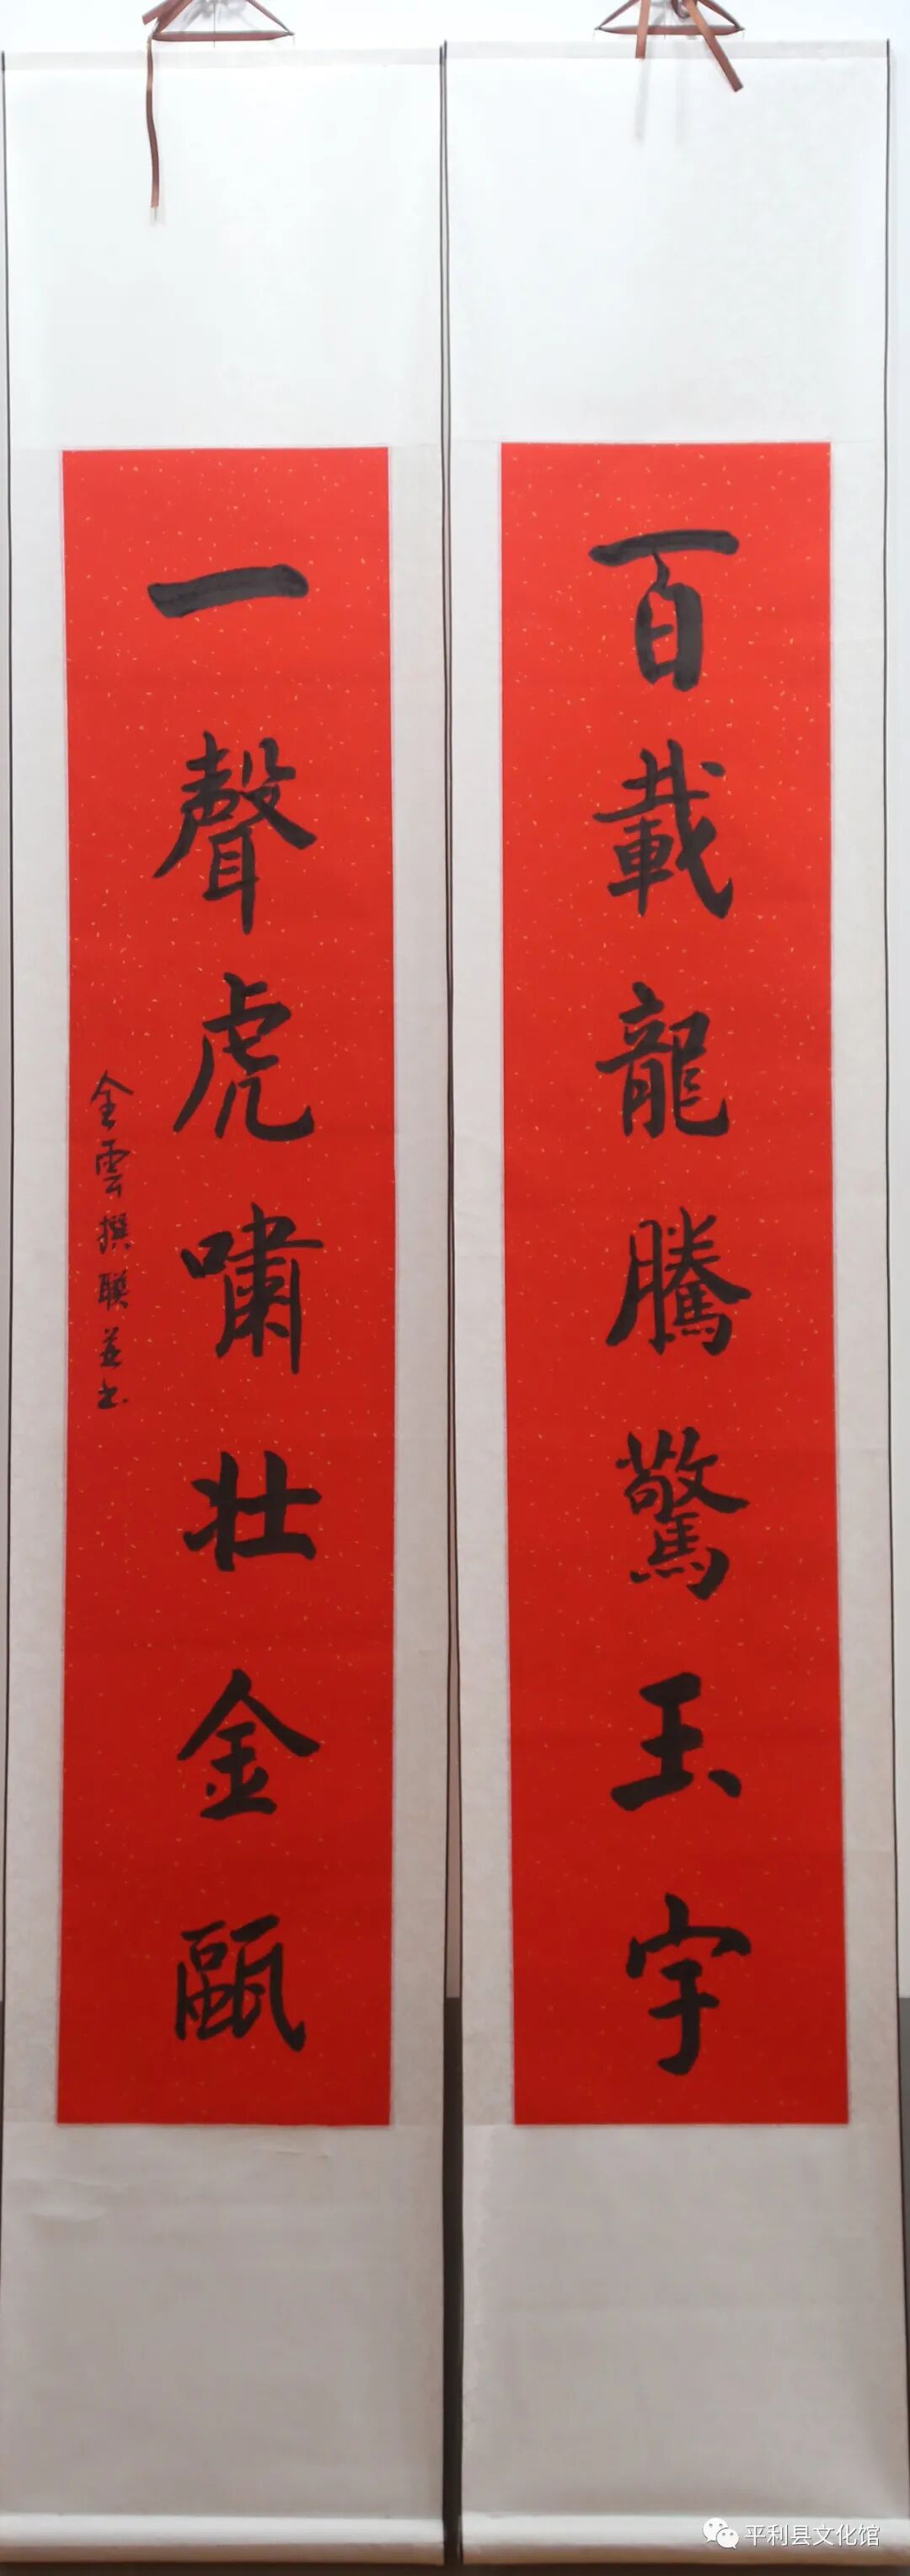 百載龍騰驚玉宇
一聲虎嘯壯金甌
全雲撰聯並书
平利县文化馆